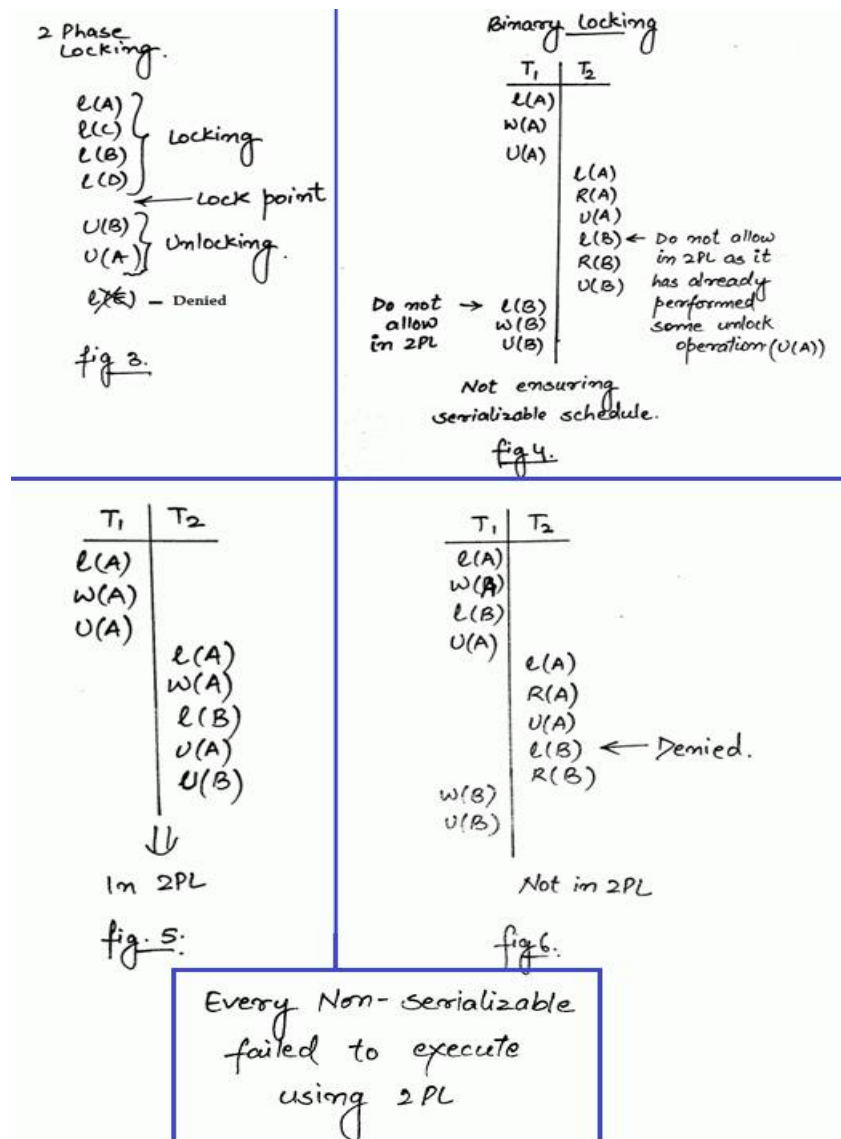 2 Phase
Locking.
l(A)
l(C)
l(B)
l(D)
Locking
← Lock point
U(B)
U(A)
Unlocking.
– Denied
fig 3.
Binary Locking
T₁ T₂
l(A)
W(A)
U(A)
l(A)
R(A)
U(A)
l(B) ← Do not allow
R(B) in 2PL as it
U(B) has already
performed
some unlock
operation (U(A))
Do not → l(B)
allow W(B)
in 2PL U(B)
Not ensuring
serializable schedule.
fig 4.
T₁ T₂
l(A)
W(A)
U(A)
l(A)
W(A)
l(B)
U(A)
U(B)
⇓
In 2PL
fig. 5.
T₁ T₂
l(A)
W(A)
l(B)
U(A)
l(A)
R(A)
U(A)
l(B) ← Denied.
R(B)
W(B)
U(B)
Not in 2PL
fig 6.
Every Non-serializable
failed to execute
using 2PL